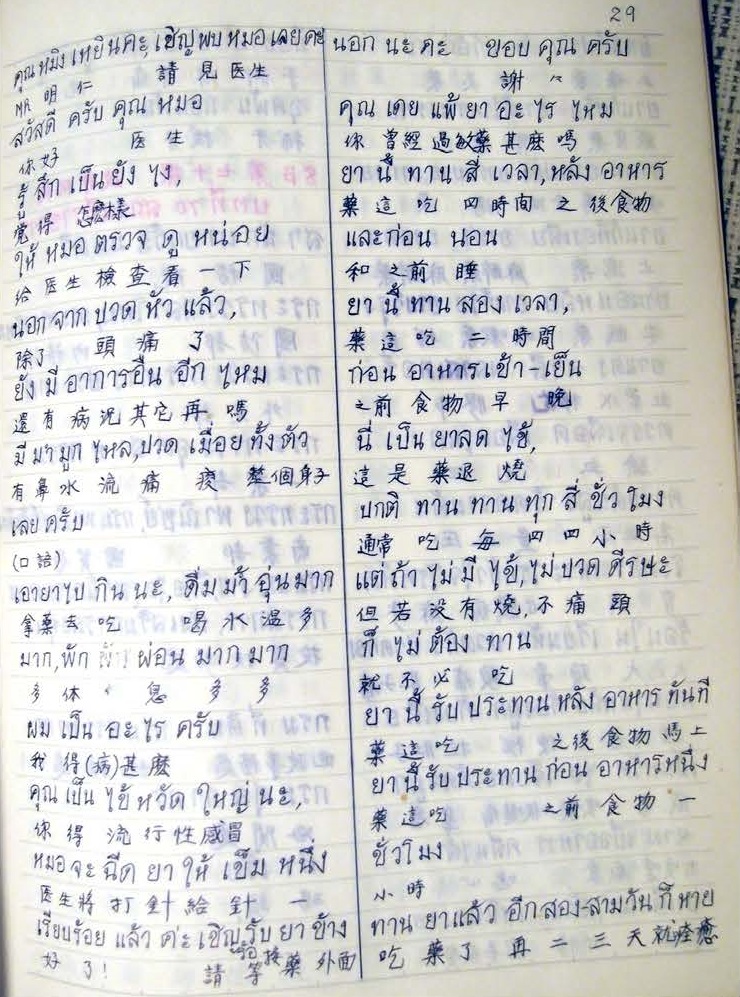 29
คุณหมิงเหยินคะ, เชิญพบหมอเลยคะ
MR 明仁 請見医生
สวัสดี ครับ คุณ หมอ
你好 医生
รู้สึก เป็น ยัง ไง,
覺得 怎麽樣
ให้ หมอ ตรวจ ดู หน่อย
給 医生 檢查 看 一下
นอกจาก ปวด หัว แล้ว,
除了 頭 痛 了
ยัง มี อาการ อื่น อีก ไหม
還有 病況 其它 再 嗎
มี น้ำ มูก ไหล, ปวด เมื่อย ทั้ง ตัว
有 鼻水 流 痛 痠 整個身子
เลย ครับ
(口語)
เอายาไป กิน นะ, ดื่ม น้ำ อุ่น มาก
拿藥去 吃 喝 水 温 多
มาก, พัก ผ่อน มาก มาก
多 休 息 多 多
ผม เป็น อะไร ครับ
我 得(病)甚麽
คุณ เป็น ไข้ หวัด ใหญ่ นะ,
你 得 流行性感冒
หมอ จะ ฉีด ยา ให้ เข็ม หนึ่ง
医生 將 打針 給 針 一
เรียบร้อย แล้ว ค่ะ เชิญ รับ ยา ข้าง
好 了! 請 等 接 藥 外面
นอก นะ คะ ขอบ คุณ ครับ
謝
คุณ เคย แพ้ ยา อะ ไร ไหม
你 曾經 過敏藥 甚麽 嗎
ยา นี้ ทาน สี่ เวลา, หลัง อาหาร
藥 這 吃 四 時間 之後食物
และก่อน นอน
和 之前 睡
ยา นี้ ทาน สอง เวลา,
藥 這 吃 二 時間
ก่อน อาหาร เช้า-เย็น
之前 食物 早 晚
นี่ เป็น ยาลด ไข้,
這 是 藥退 燒
ปกติ ทาน ทาน ทุก สี่ ชั่ว โมง
通常 吃 每 四 四 小 時
แต่ ถ้า ไม่ มี ไข้, ไม่ ปวด ศีรษะ
但 若 没有 燒, 不 痛 頭
ก็ ไม่ ต้อง ทาน
就 不 必 吃
ยา นี้ รับ ประทาน หลัง อาหาร ทันที
藥 這 吃 之後 食物 馬上
ยา นี้ รับ ประทาน ก่อน อาหาร หนึ่ง
藥 這 吃 之前 食物 一
ชั่ว โมง
小 時
ทาน ยา แล้ว อีก สอง-สาม วัน ก็ หาย
吃 藥 了 再 二 三 天 就 痊癒